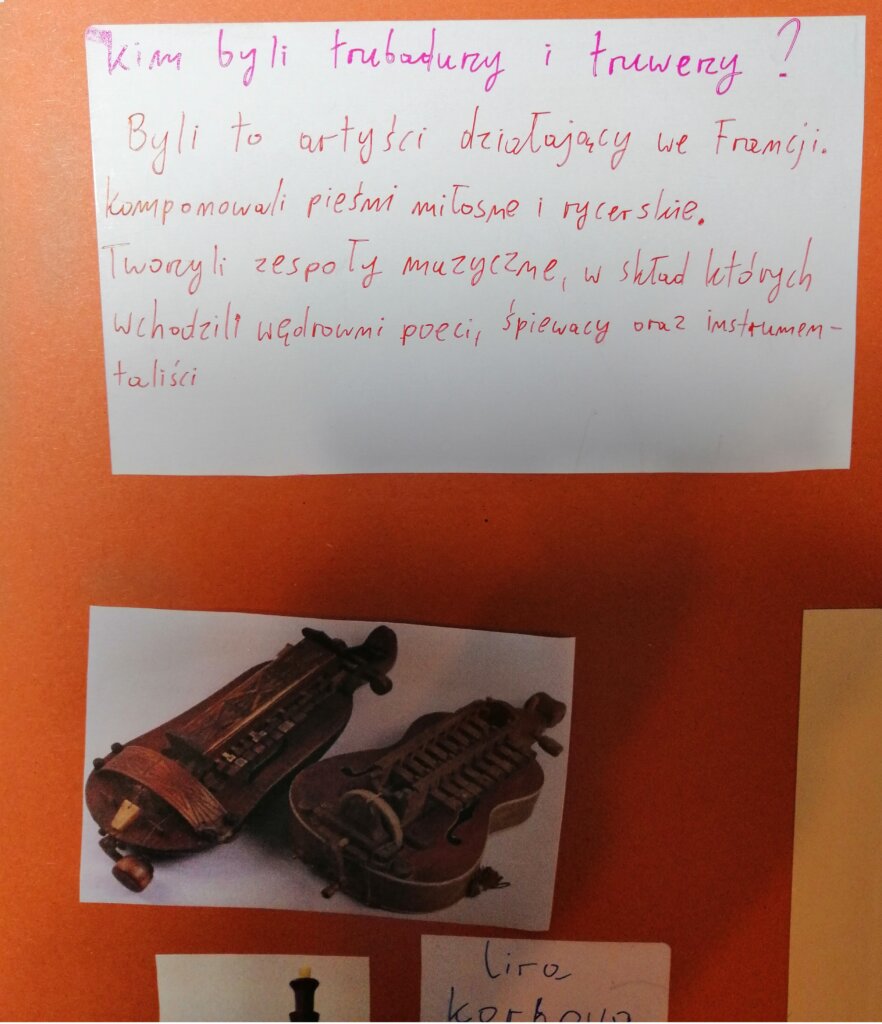 Kim byli trubadurzy i truwerzy ?
Byli to artyści działający we Francji.
Komponowali pieśni miłosne i rycerskie.
Tworzyli zespoły muzyczne, w skład których
wchodzili wędrowni poeci, śpiewacy oraz instrumen-
taliści
lira
korbowa